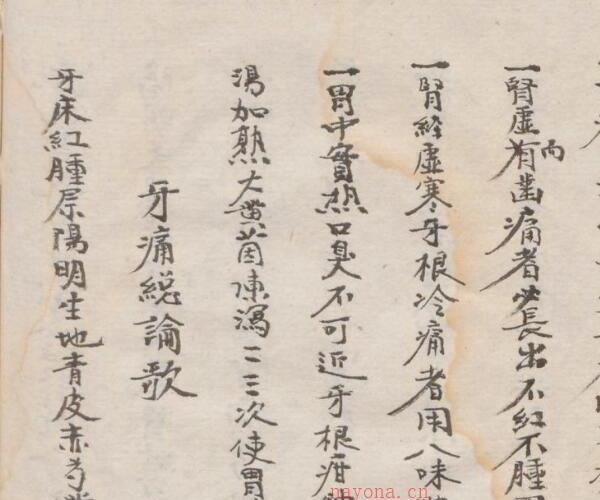 一腎虛而有齒痛者必長出不紅不腫
一腎經虛寒牙根冷痛者用八味
一胃中實熱口臭不可近牙根疳
湯加熟大黃茵陳瀉二三次使胃
牙痛総論歌
牙床紅腫屬陽明生地青皮赤芍
nayona.cn